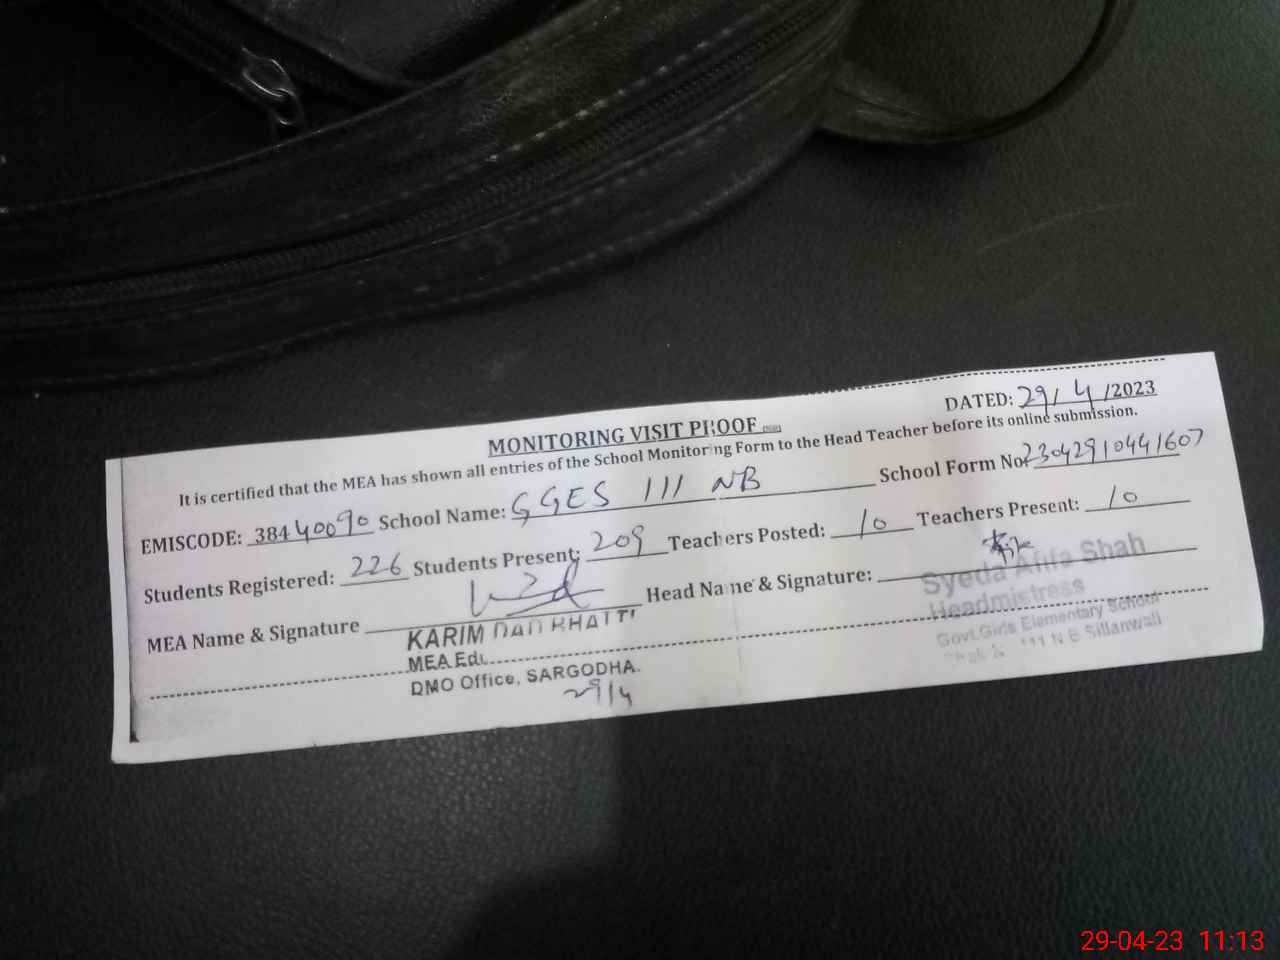 DATED: 29/4/2023
MONITORING VISIT PROOF
It is certified that the MEA has shown all entries of the School Monitoring Form to the Head Teacher before its online submission.
EMISCODE: 38440090 School Name: GGES 111 NB School Form No: 23042910441607
Students Registered: 226 Students Present: 209 Teachers Posted: 10 Teachers Present: 10
MEA Name & Signature Head Name & Signature:
KARIM DAD BHATTI
MEA Edu
DMO Office, SARGODHA.
29/4
Syeda Afifa Shah
Headmistress
Govt.Girls Elementary School
111 N B Sillanwali
29-04-23 11:13